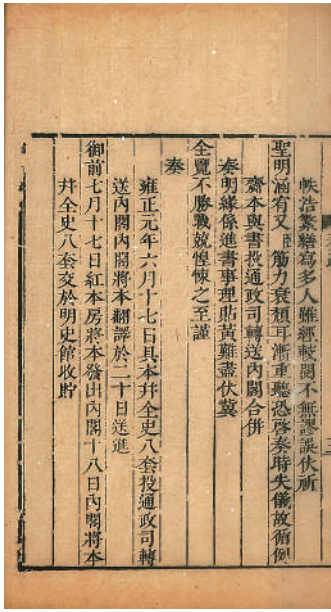 帙浩繁繕寫多人雖經較閱不無謬誤伏祈
聖明涵宥又臣筋力衰頹耳漸重聽恐啓奏時失儀故循例
齎本與書投通政司轉送內閣合併
奏明緣係進書事理貼黃難盡伏冀
全覽不勝戰兢悚之至謹
奏
雍正元年六月十七日具本幷全史八套投通政司轉
送內閣內閣將本翻譯於二十日送進
御前七月十七日紅本房將本發出內閣十八日內閣將本
幷全史八套交於明史館收貯